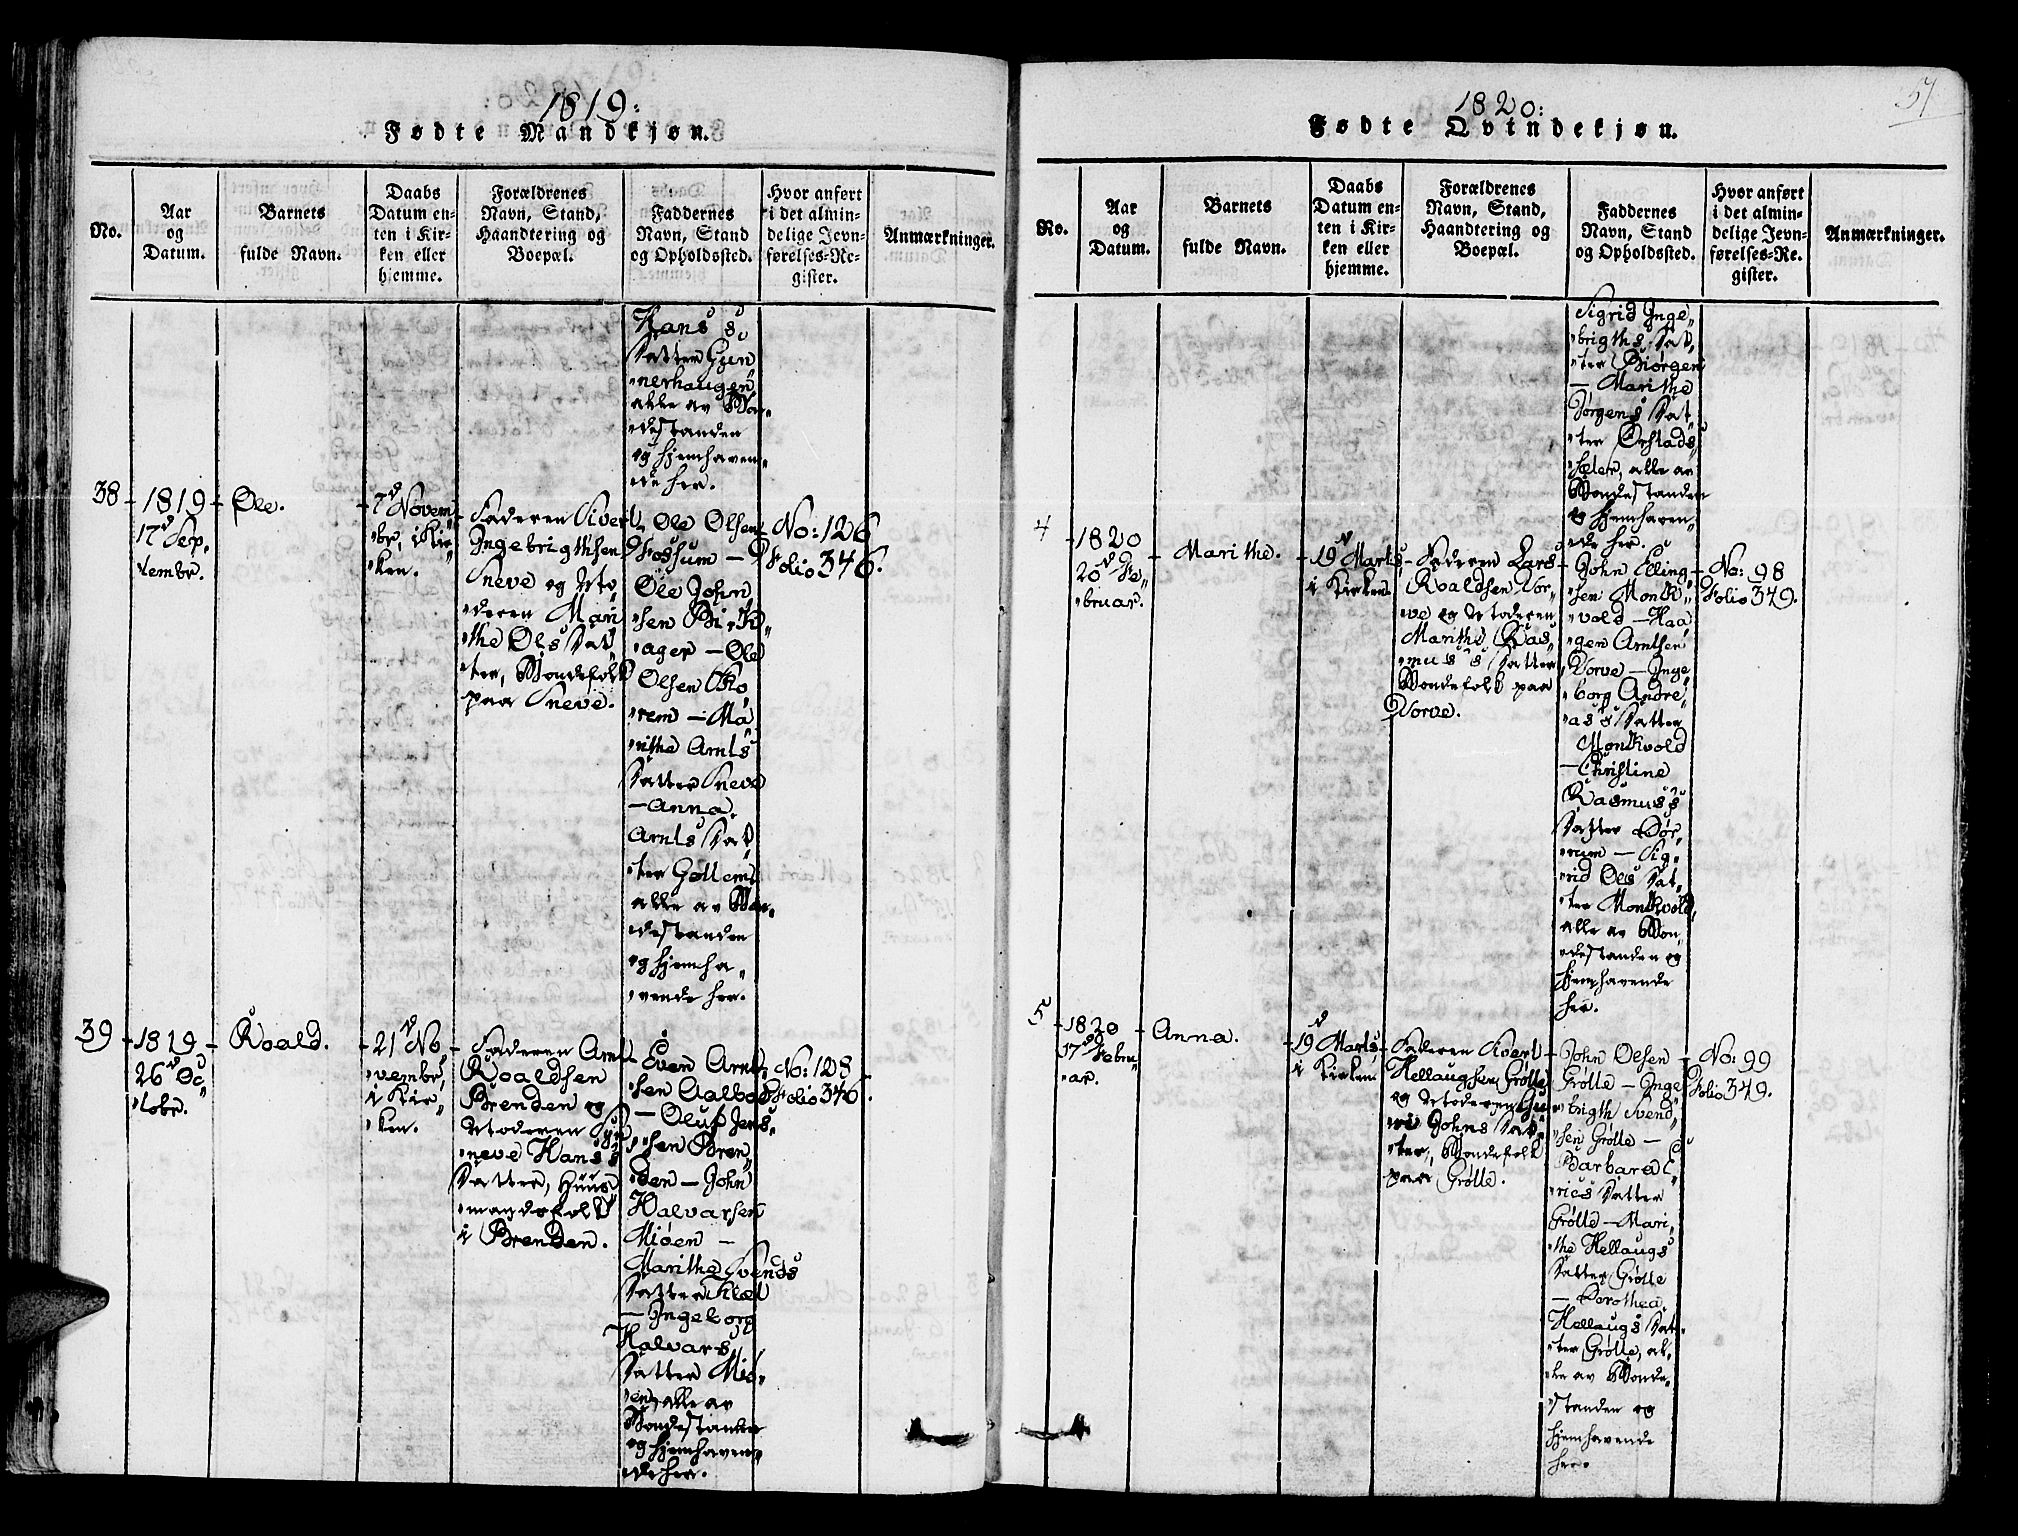 1819:
Fødte Mandkjøn.
No.
Aar
og
Datum.
Barnets
fulde Navn.
Daabs
Datum en-
ten i Kir-
ken eller
hjemme.
Forældrenes
Navn, Stand,
Haandtering og
Boepæl.
Faddernes
Navn, Stand
og Opholdssted.
Hvor anført
i det almin-
delige Jevn-
førelses-Re-
gister.
Anmærkninger.
Hans s
Datter Gun
nerhaugen
alle av Bon
destanden
og hjemhaven
de her.
38
1819
17d Sep
tembr.
Ole.
7d Novem
br, i Kir
ken.
Faderen Sivert
Ingebrigthsen
Sneve og Mo
deren Mari
the Ols Dat
ter, Bondefolk
paa Sneve.
Ole Olsen
Fossum —
Ole John
sen Birk
ager — Ole
Olsen
rem — Ma
rithe Arnts
Datter Sneve
— Anna
Arnts Dat
ter Gollem
alle av Bon
destanden
og hjemha
vende her.
No: 126
Folio 346.
39
1819
26d Oc
tobr.
Roald.
21d No
vembr,
i Kir
ken.
Faderen Arnt
Roaldsen
Brenden og
Moderen
neve Hans s
Datter, Huus
mandsfolk
i Brenden.
Even Arnt
sen Aalbo
— Oluf Jens
sen Bren
den — John
Halvarsen
Miøen —
Marithe Svends
Datter
— Ingeborg
Halvars
Datter Miø
en, alle av
Bondestanden
og hjemhaven
de her.
No: 128
Folio 346.
57
1820:
Fødte Qvindekjøn.
No.
Aar
og
Datum.
Barnets
fulde Navn.
Daabs
Datum en-
ten i Kir-
ken eller
hjemme.
Forældrenes
Navn, Stand,
Haandtering og
Boepæl.
Faddernes
Navn, Stand
og Opholdssted.
Hvor anført
i det almin-
delige Jevn-
førelses-Re-
gister.
Anmærkninger.
Sigrid Inge
brigths Dat
ter Biørgen
— Marithe
Jørgens Dat
ter Ørstads
sæter, alle av
Bondestanden
og hjemhaven
de her.
4
1820
20d Fe
bruar.
Marithe.
19d Marts
i Kirken.
Faderen Lars
Roaldsen Vor
ve og Moderen
Marithe Ras
mus s Datter
Bondefolk paa
Vorve.
John Elling
sen Monk
vold — Haa
gen Arntsen
Vorve — Inge
borg Andre
as s Datter
Monkvold
— Christine
Rasmus s
Datter Dør
rum — Sig
rid Ols Dat
ter Monkvold,
alle av Bon
destanden og
hjemhavende
her.
No: 98
Folio 349.
5
1820
17d Febru
ar.
Anna.
19d Marts
i Kirken
Faderen Sivert
Hellaugsen Grøtte
og Moderen Gu
ri Johns Dat
ter, Bondefolk
paa Grøtte.
John Olsen
Grøtte — Inge
brigth Svend
sen Grøtte —
Barbara E
rics Datter
Grøtte — Mari
the Hellaugs
Datter Grøtte
— Dorothea
Hellaugs Dat
ter Grøtte, al
le av Bonde
standen og
hjemhavende
her.
No: 99
Folio 349.